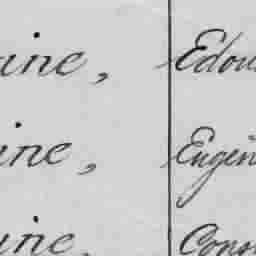 ine, Edou
ine, Eugèn
ine, Cons